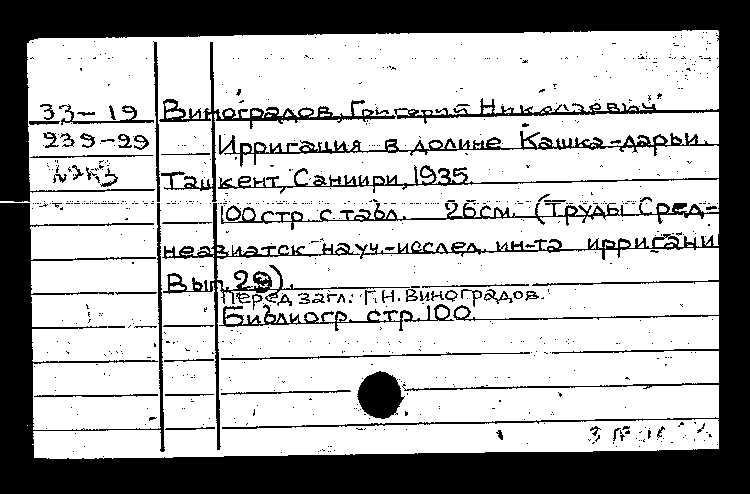 33-19 Виноградов, Григорий Николаевич
239-29 Ирригация в долине Кашка-дарьи.
Ташкент, Саниири, 1935.
100 стр. с табл. 26 см. (Труды Сред-
неазиатск науч.-исслед. ин-та ирригани
Вып. 29).
Перед загл.: Г.Н. Виноградов.
Библиогр. стр. 100.